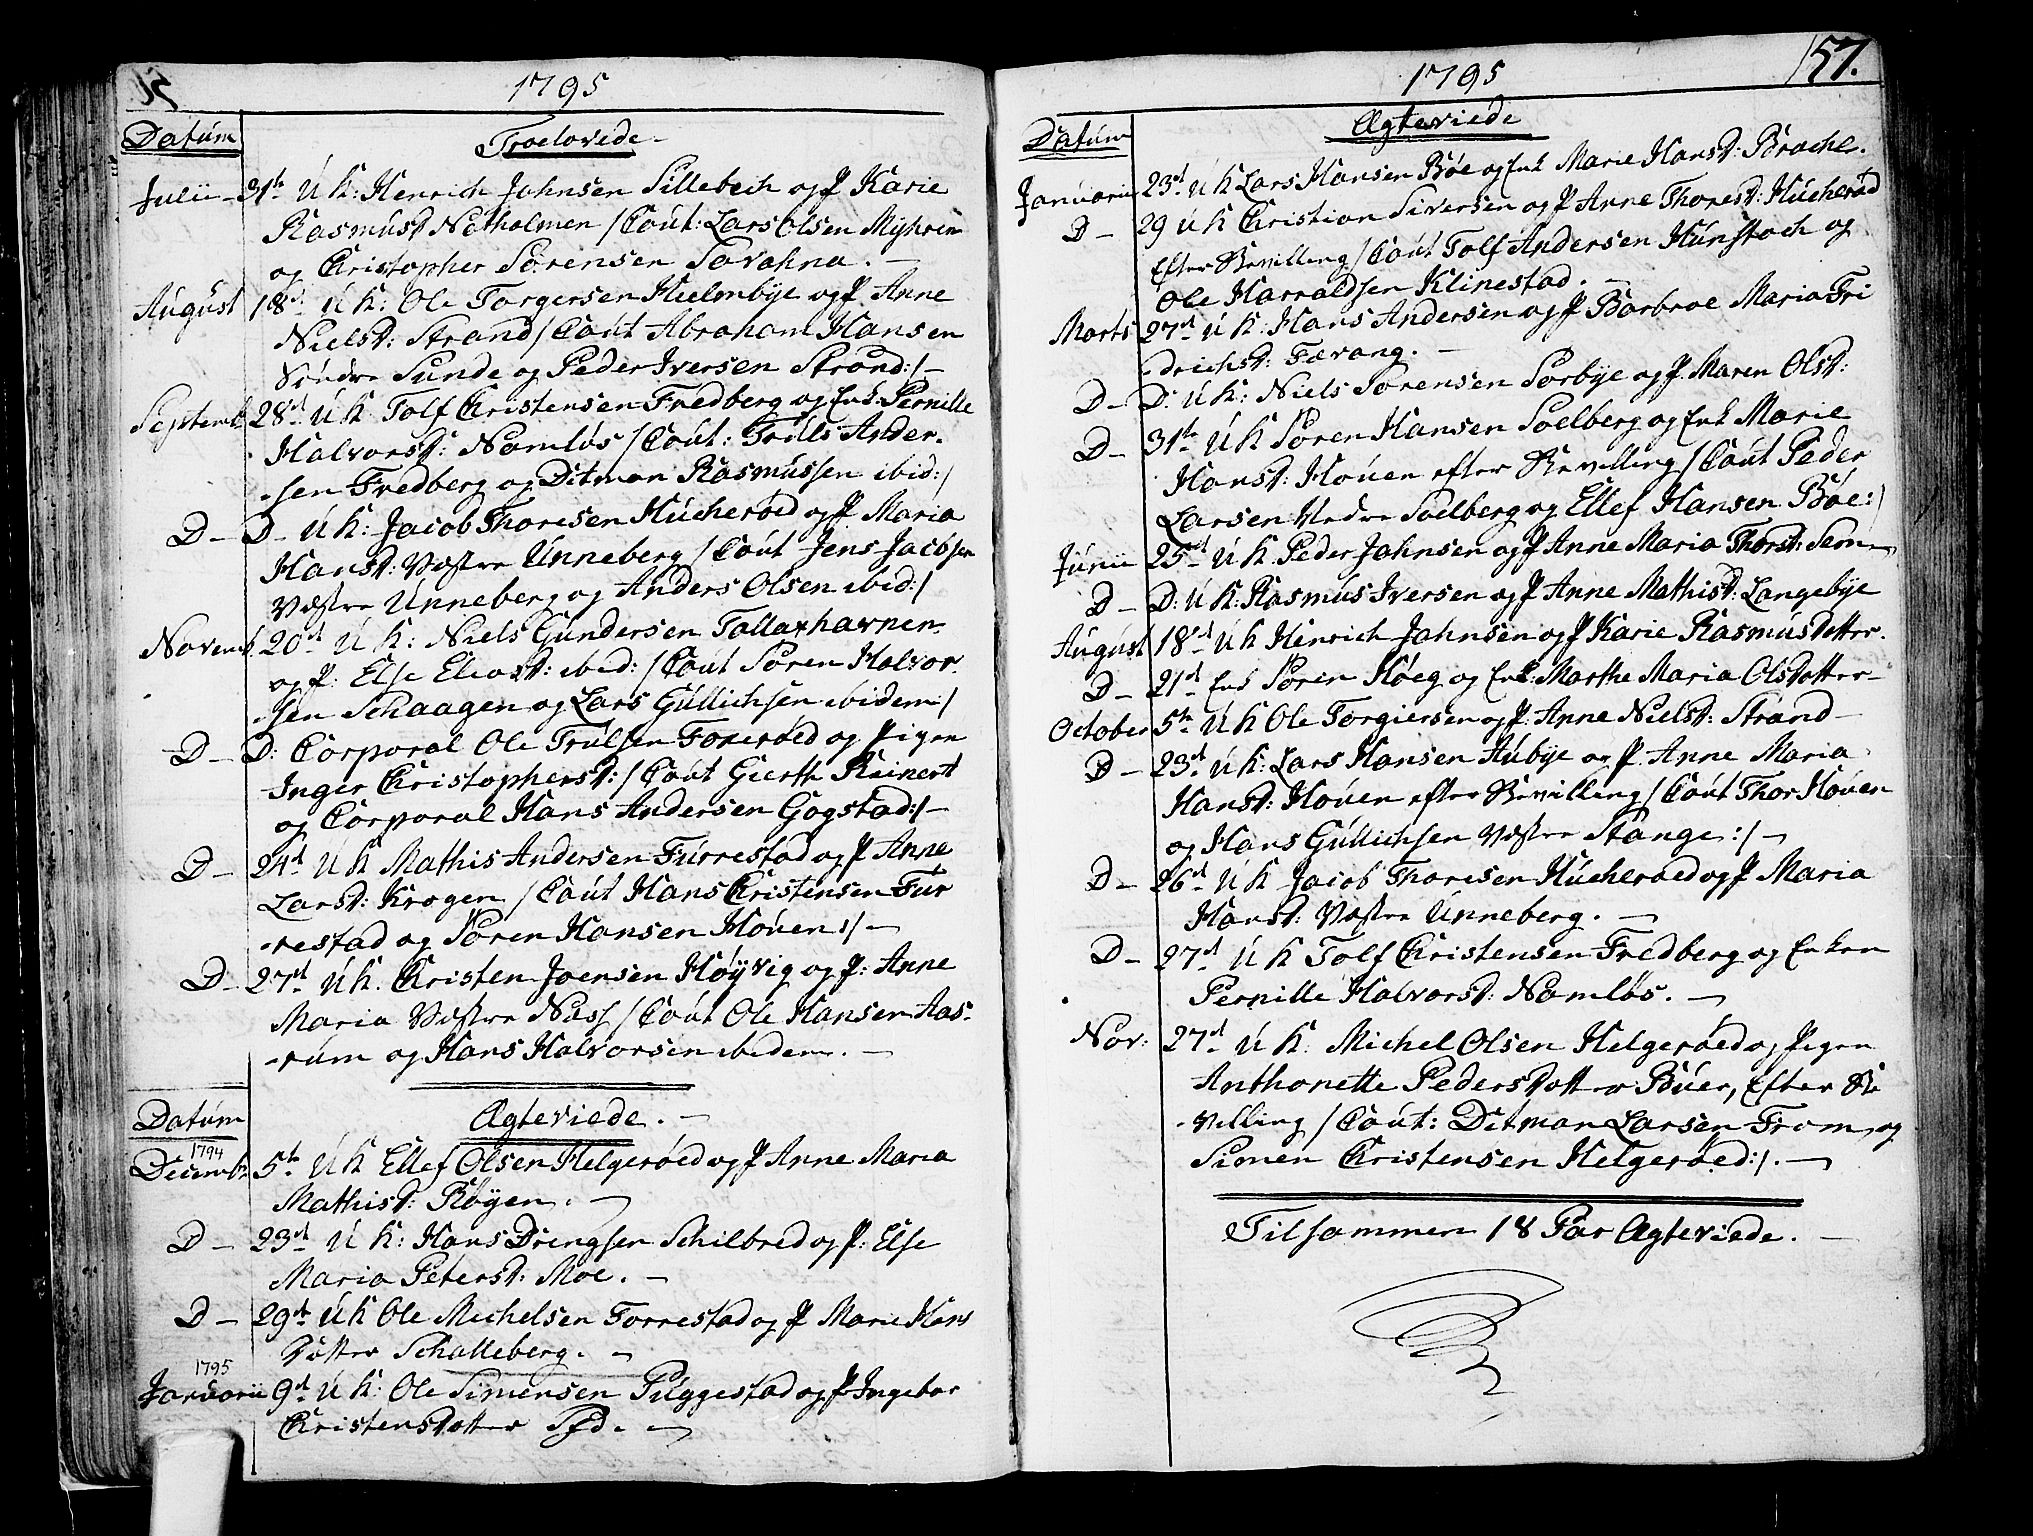 1795
Datum
Troelovede.
Julii - 31te U K: Henrich Jahnsen Sillebech og P Karie
Rasmusd Natholmen /Caut: Lars Olsen Myhren
og Christopher Sörensen
August 18de U K: Ole Torgersen Hielmbÿe og P Anne
Nielsd: Strand / Caut Abraham Hansen
Söndre Sunde og Peder Iversen Strand:/-
Septemb 28de U K Tolf Christensen Fredberg og Enk: Pernille
Halvorsd: Namløs / Caut: Truls Ander-
-sen Fredberg og Ditman Rasmussen ibid:/
D - D - U K: Jacob Thoresen Hucherøed og P Maria
Hansd: Vestre Unneberg / Caut Jens Jacobsen
Vestre Unneberg og Anders Olsen ibid:/
Novemb. 20de U K: Niels Gundersen Tallaxhavnen
og P: Else ibid: / Caut Sören Halvor-
-sen Schaagen og Lars Gullichsen ibidem:/
D - D: Corporal Ole Trulsen Foxerøed og Pigen
Inger Christophersd: / Caut Gierth Reinert
og Corporal Hans Andersen Gogstad:/-
D - 24d U K Mathis Andersen Furrestad og P Anne
Larsd: Krogen / Caut Hans Christensen Fur
-restad og Sören Hansen Høuen:/-
D - 27de U K. Christen Joensen Høÿvig og P: Anne
Maria Vestre Næss / Caut Ole Hansen Aas-
-rum og Hans Halvorsen ibidem. -
Datum
Ægteviede. -
1794
Decemb: 5te U K Ellef Olsen Helgerøed og P Anne Maria
Mathisd: Røÿen. -
D - 23de U K: Hans Drengsen Schilbred og P: Else
Maria Petersd: Moe. -
D - 29de U K Ole Michelsen Forrestad og P Marie Hans
Dotter Schalleberg. -
1795
Januarii 9de U K: Ole Simensen Puggestad og P Ingebor
Christensdotter -
1795
157.
Datum
Ægteviede
Januarii 23de U K Lars Hansen Bøe og Enk Marie Hansd: Brache.
D - 29 U K Christian Siversen og P Anne Thoresd: Hucherød
Efter Bevilling / Caut Tolf Andersen Hunstoch og
Ole Harraldsen Klinestad. -
Marts 27de U K: Hans Andersen og P Barbroe Maria Fri
-drichsd: Færang. -
D - D: U K: Niels Sörensen Sørbÿe og P. Maren Olsd:
D - 31te U K Sören Hansen Soelberg og Enk Marie
Hansd: Høuen efter Bevilling / Caut Peder
Larsen Nedre Soelberg og Ellef Hansen Bøe:/
Junii 25de U K Peder Jahnsen og P Anne Maria Thorsd: Sem -
D - D: U K: Rasmus Iversen og P Anne Mathisd: Langebÿe
August 18de U K Henrich Jahnsen og P Karie Rasmusdotter.
D - 21de Enk Sören Høeg og Enk: Marthe Maria Olsdotter -
October 5te U K Ole Torgiersen og P: Anne Nielsd: Strand -
D - 23de U K: Lars Hansen Aubÿe og P. Anne Maria
Hansd: Høuen efter Bevilling / Caut Thor Høuen
og Hans Gullichsen Vestre Stange:/-
D - 26de U K Jacob Thoresen Hucherøed og P Maria
Hansd: Vestre Unneberg. -
D - 27de U K Tolf Christensen Fredberg og Enken
Pernille Halvorsd: Namløs. -
Nov: 27de U K. Michel Olsen Helgerøed og Pigen
Anthonette Pedersdotter Buer, Efter Be
-villing / Caut: Ditman Larsen From, og
Simen Christensen Helgerøed:/. -
Tilsammen 18 Par Ægteviede. -